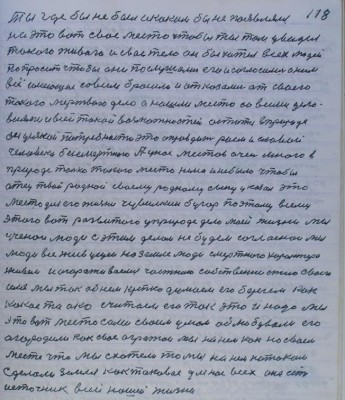 118
Ты где бы не был и каким бы не появлялся
на это вот свое место чтобы ты там увидел
такого живого и свое тело он бы хотел всех людей
попросить чтобы они послушали его и согласились с ним
всё имеющее совсем бросили и отказались от своего
такого мертвого дела а нашли место со всеми дело-
выми и всей такой возможностей стать в природе
без всякой потребности это оправдать рая и славой
человеку бессмертного А уное местов очень много в
природе только такого место нема и не было чтобы
отец твой родной своему родному сыну указал это
место для его жизни чувилкин бугор поэтому всему
этого вот развитого в природе дело моей жизни мы
ученые люди с этим делом не будем согласной мы
люди все живущие на земле люди смертного характера
живем и огораживаем частною собственностью своего
села мы так об нем крепко думаем его бережем как
какое то око считаем его так это и надо мы
это вот место сами своим умом облюбовали его
огородили как свое огротое мы на нем как на своем
месте что мы схотели то мы на нем потом
сделали земля как таковая для нас всех она есть
источник всей нашей жизни